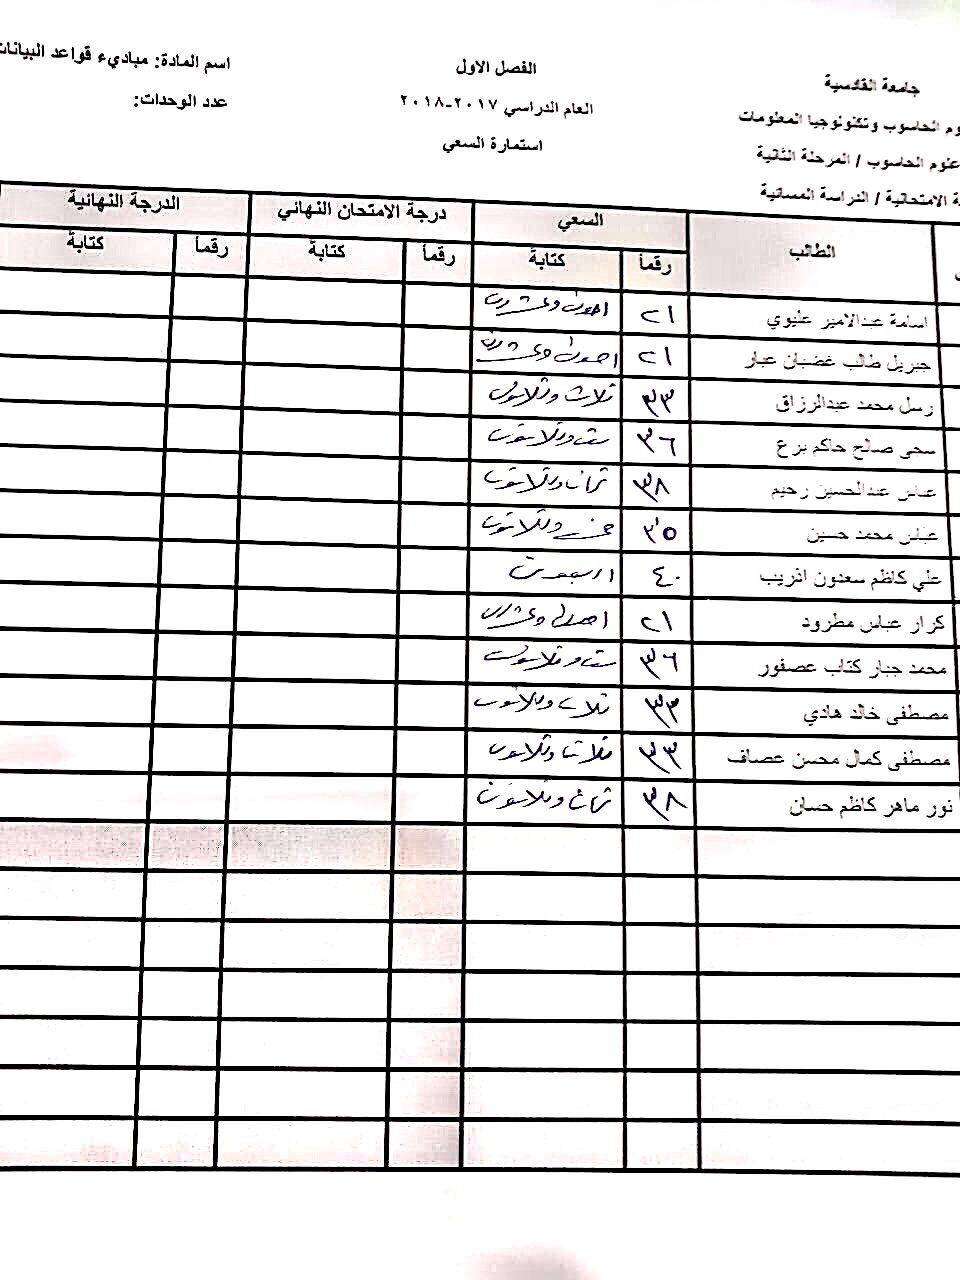 جامعة القادسية
وم الحاسوب وتكنولوجيا المعلومات
علوم الحاسوب / المرحلة الثانية
ة الامتحانية / الدراسة المسائية
الفصل الاول
العام الدراسي ٢٠١٧-٢٠١٨
استمارة السعي
اسم المادة: مباديء قواعد البيانات
عدد الوحدات:
الطالب السعي درجة الامتحان النهائي الدرجة النهائية
رقماً كتابة رقماً كتابة رقماً كتابة
اسامة عبدالامير عليوي ٢١ احدى وعشرون
جبريل طالب غضبان عبار ٢١ احدى وعشرون
رسل محمد عبدالرزاق ٣٣ ثلاث وثلاثون
سحى صالح حاكم برع ٣٦ ست وثلاثون
عباس عبدالحسين رحيم ٣٨ ثمان وثلاثون
عباس محمد حسين ٣٥ خمس وثلاثون
علي كاظم سعدون اذريب ٤٠ اربعون
كرار عباس مطرود ٢١ احدى وعشرون
محمد جبار كتاب عصفور ٣٦ ست وثلاثون
مصطفى خالد هادي ٣٣ ثلاث وثلاثون
مصطفى كمال محسن عصاف ٣٣ ثلاث وثلاثون
نور ماهر كاظم حسان ٣٨ ثمان وثلاثون